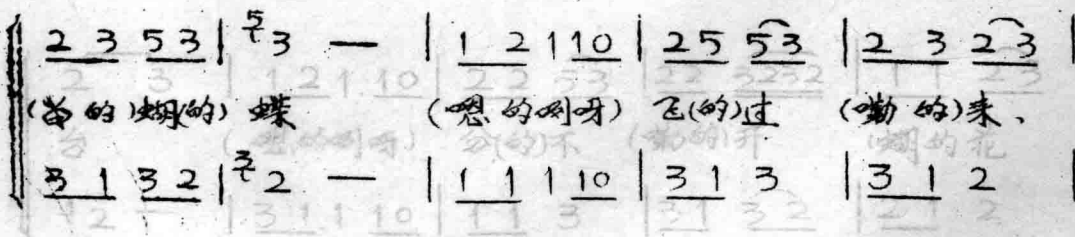 2 3 5 3 | 5 3 — | 1 2 1 10 | 2 5 5 3 | 2 3 2 3 |
(的)蝴(的) 蝶 (嗯的咧呀) 飞(的)过 (嘞的)来、
3 1 3 2 | 3 2 — | 1 1 1 10 | 3 1 3 | 3 1 2 |